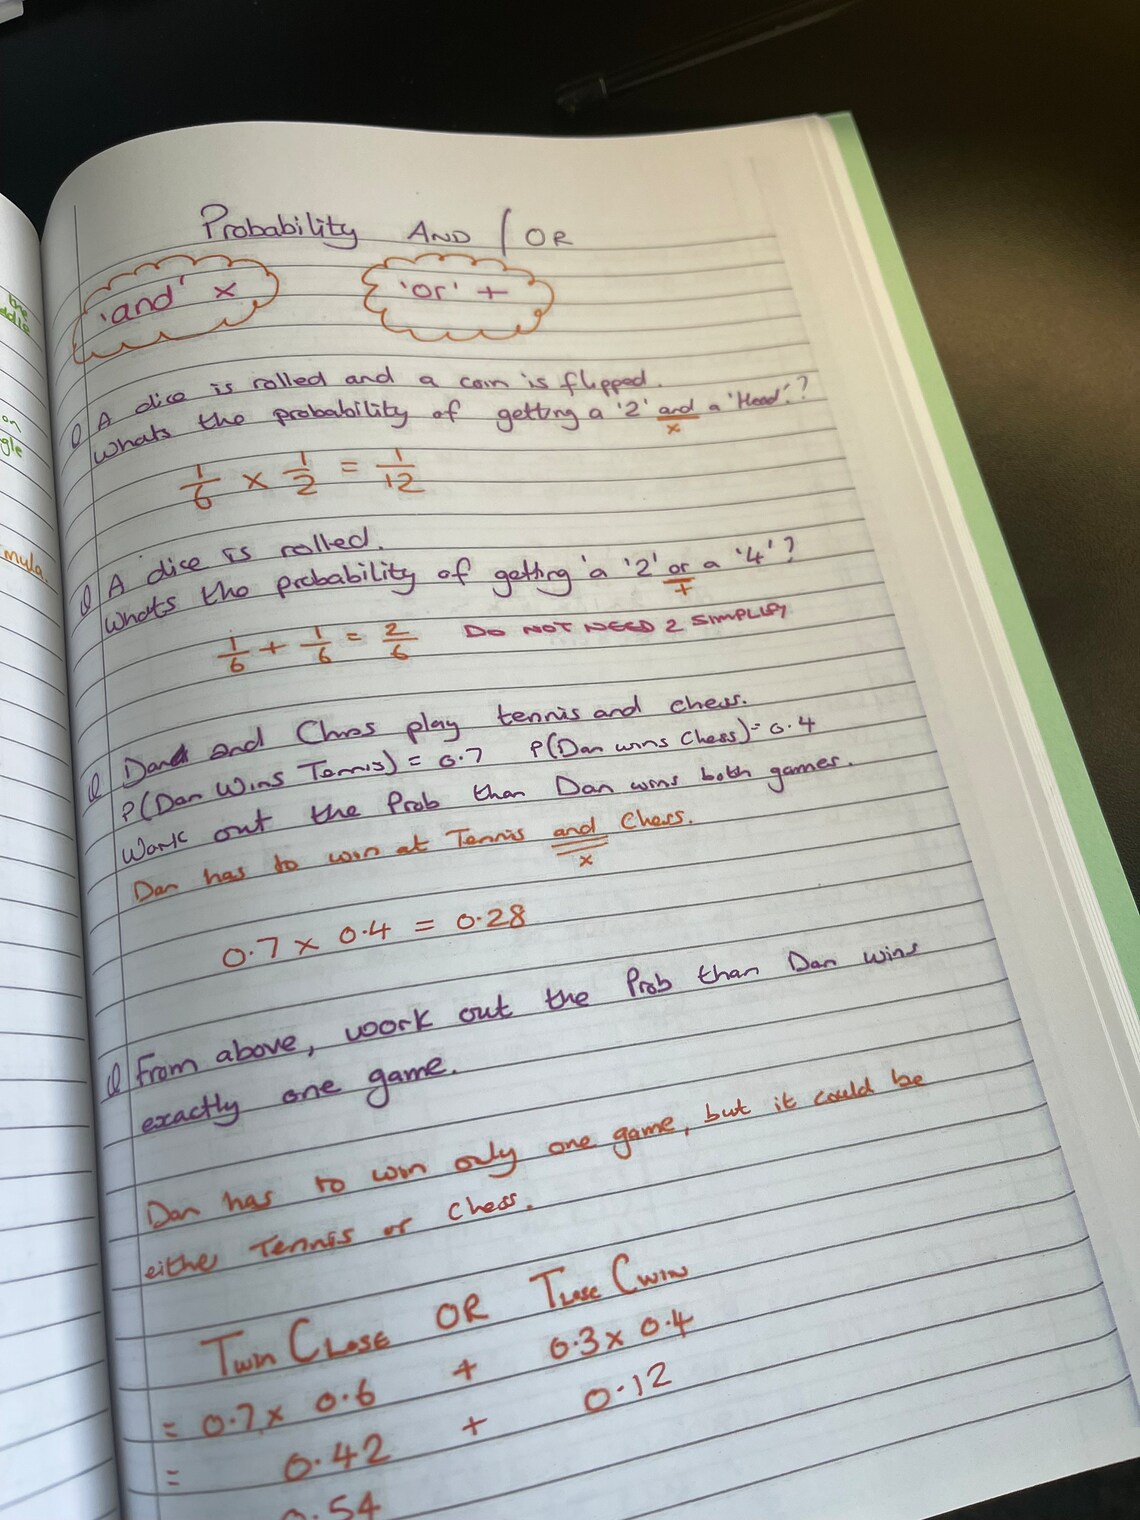 Probability AND / OR
'and' × 'or' +
Q A dice is rolled and a coin is flipped.
Whats the probability of getting a '2' and a 'Head'?
×
1/6 × 1/2 = 1/12
Q A dice is rolled.
Whats the probability of getting a '2' or a '4'?
+
1/6 + 1/6 = 2/6 DO NOT NEED 2 SIMPLIFY
Q Dan and Chris play tennis and chess.
P(Dan Wins Tennis) = 0.7 P(Dan wins Chess) = 0.4
Work out the Prob than Dan wins both games.
Dan has to win at Tennis and Chess.
×
0.7 × 0.4 = 0.28
Q From above, work out the Prob than Dan wins
exactly one game.
Dan has to win only one game, but it could be
either Tennis or Chess.
Twin CLOSE OR TLose Cwin
= 0.7 × 0.6 + 0.3 × 0.4
= 0.42 + 0.12
0.54
mula.
on
gle